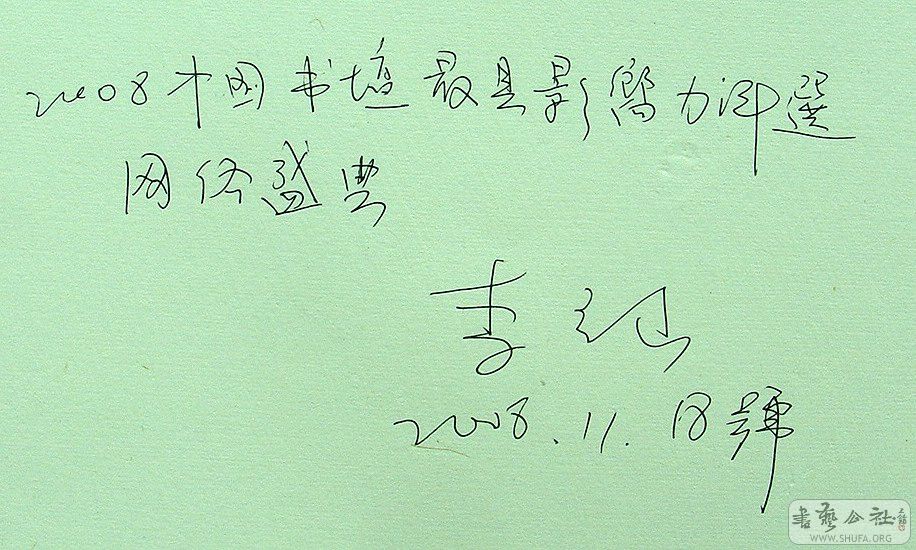 2008中国书坛最具影響力评選
网络盛典
李
2008.11.18號
書藝公社
WWW.SHUFA.ORG